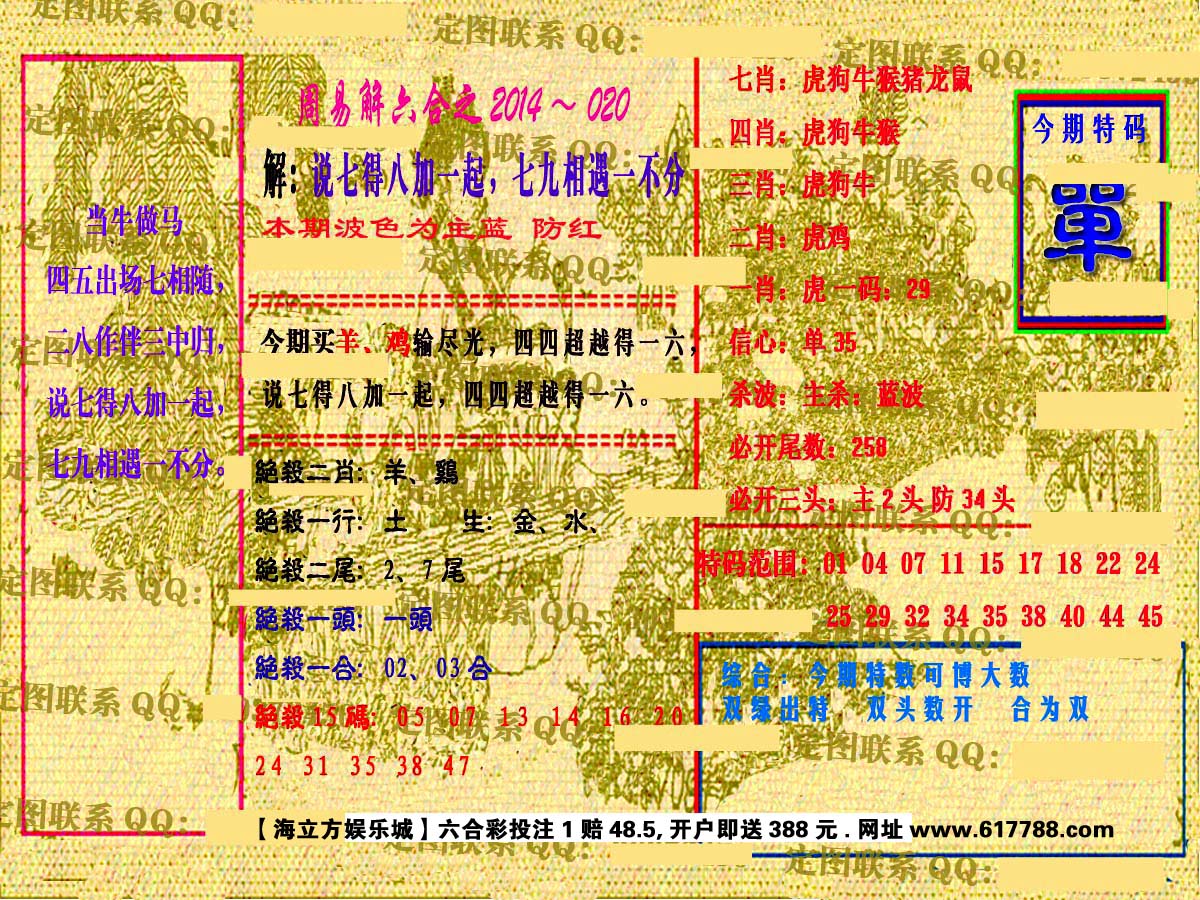 周易解六合之2014～020
当牛做马
四五出场七相随，
二八作伴三中归，
说七得八加一起，
七九相遇一不分。
解：说七得八加一起，七九相遇一不分
本期波色为主蓝 防红
今期买羊、鸡输尽光，四四超越得一六，
说七得八加一起，四四超越得一六。
絕殺二肖：羊、鷄
絕殺一行：土 生：金、水、
絕殺二尾：2、7尾
絕殺一頭：一頭
絕殺一合：02、03合
絕殺15碼：05 07 13 14 16 20
24 31 35 38 47
七肖：虎狗牛猴猪龙鼠
四肖：虎狗牛猴
三肖：虎狗牛
二肖：虎鸡
一肖：虎一码：29
信心：单35
杀波：主杀：蓝波
必开尾数：258
必开三头：主2头防34头
今期特码
單
特码范围：01 04 07 11 15 17 18 22 24
25 29 32 34 35 38 40 44 45
综合：今期特数可博大数
双绿出特 双头数开 合为双
【海立方娱乐城】六合彩投注1赔48.5,开户即送388元.网址www.617788.com
定图联系QQ：
定图联系QQ：
定图联系QQ：
定图联系QQ：
定图联系QQ：
定图联系QQ：
定图联系QQ：
定图联系QQ：
定图联系QQ：
定图联系QQ：